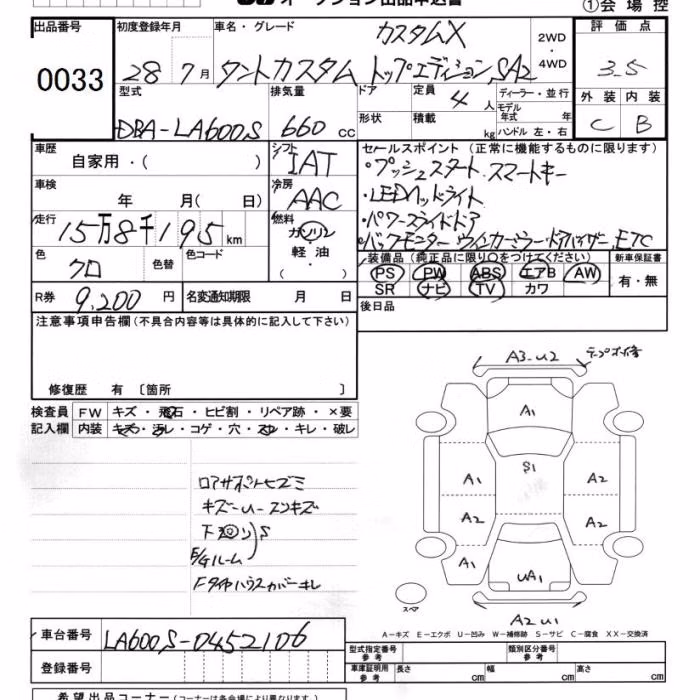 オークション出品申込書 ①会場控
出品番号 初度登録年月 車名・グレード カスタムX 2WD・4WD 評価点
0033 28年7月 タントカスタム トップエディションSA2 3.5
型式 排気量 ドア 定員 4人 ディーラー・並行 外装 内装
DBA-LA600S 660cc 形状 積載 kg モデル年式 年 ハンドル 左・右 C B
車歴 自家用・( ) シフト IAT セールスポイント(正常に機能するものに限ります)
・プッシュスタート スマートキー
車検 年 月(日) 冷房 AAC ・LEDヘッドライト
走行 15万8千195km 燃料 ガソリン ・パワースライドドア
軽油 ・バックモニター ウィンカーミラー ドアバイザー ETC
色 クロ 色替 色コード 装備品(純正品に限り○をつけてください) 新車保証書
PS PW ABS エアB AW 有・無
SR ナビ TV カワ
R券 9,200円 名変通知期限 月 日 後日品
注意事項申告欄(不具合内容等は具体的に記入して下さい)
修復歴 有 〔箇所 〕
検査員記入欄 FW キズ・飛石・ヒビ割・リペア跡・×要
内装 キズ・汚レ・コゲ・穴・スレ・キレ・破レ
ロアサポートヒズミ
キズ-U-スリキズ
下回り S
E/Gルーム
Fタイヤハウスカバーキレ
A3-U2
A1
S1
A1 A2
A2 A2
A1
UA1
A2 U1
スペア
A-キズ E-エクボ U-凹み W-補修跡 S-サビ C-腐食 XX-交換済
車台番号 LA600S-0452106
型式指定番号 参考 類別区分番号 参考
登録番号 車庫証明用 参考 長さ cm 幅 cm 高さ cm
希望出品コーナー(コーナーは各会場により異なります)